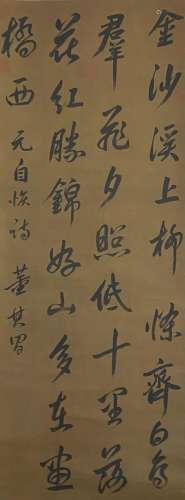 金沙溪上柳條齊白鳥
羣飛夕照低十里落
花紅勝錦好山多在畫
橋西 元自恢詩 董其昌